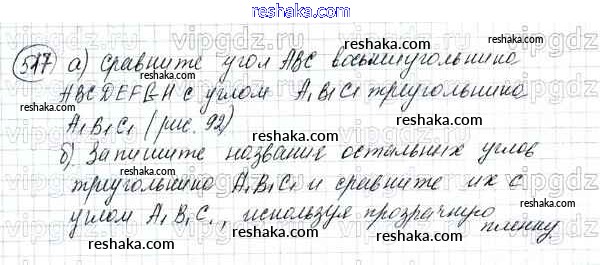 517 а) сравните угол ABC восьмиугольника
ABCDEFGH с углом A₁B₁C₁ треугольника
A₁B₁C₁ (рис. 92)
б) Запишите названия остальных углов
триугольника A₁B₁C₁ и сравните их с
углом A₁B₁C₁, используя прозрачную
пленку
reshaka.com
reshaka.com
reshaka.com
reshaka.com
reshaka.com
reshaka.com
reshaka.com
reshaka.com
reshaka.com
reshaka.com
reshaka.com
reshaka.com
reshaka.com